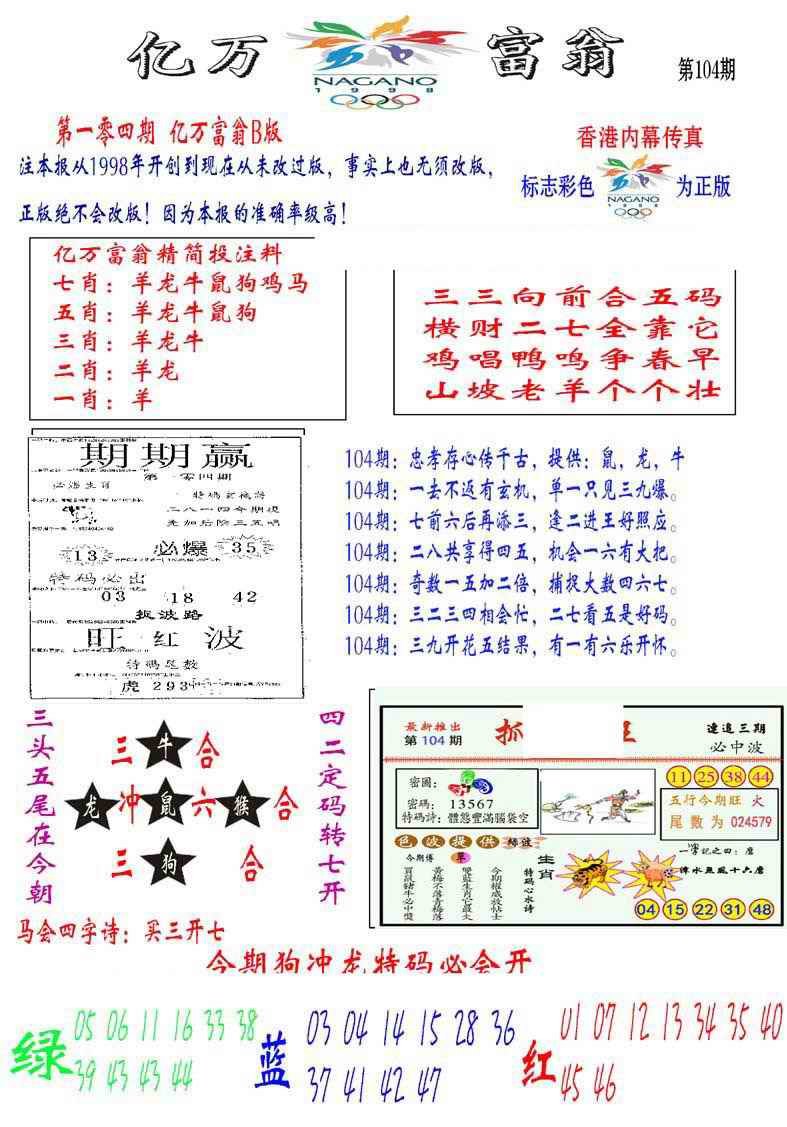 亿万
NAGANO
1998
富翁
第104期
第一零四期 亿万富翁B版
注本报从1998年开创到现在从未改过版，事实上也无须改版，
正版绝不会改版！因为本报的准确率级高！
香港内幕传真
标志彩色
NAGANO
1998
为正版
亿万富翁精简投注料
七肖：羊龙牛鼠狗鸡马
五肖：羊龙牛鼠狗
三肖：羊龙牛
二肖：羊龙
一肖：羊
三三向前合五码
横财二七全靠它
鸡唱鸭鸣争春早
山坡老羊个个壮
期期赢
第一零四期
必爆
13
35
特码必出
03 18 42
捉波路
旺红波
特码足数
虎 293
104期：忠孝存心传千古，提供：鼠，龙，牛
104期：一去不返有玄机，单一只见三九爆。
104期：七前六后再添三，逢二进王好照应。
104期：二八共享得四五，机会一六有大把。
104期：奇数一五加二倍，捕捉大数四六七。
104期：三二三四相会忙，二七看五是好码。
104期：三九开花五结果，有一有六乐开怀。
三头五尾在今朝
三 牛 合
龙 冲 鼠 六 猴 合
三 狗 合
四二定码转七开
最新推出
第104期
抓
连追三期
必中波
密圖：
密碼：13567
特碼詩：體態豐滿腦袋空
11 25 38 44
五行今期旺 火
尾数为 024579
色波提供 绿波
今期傳
草
生肖
特碼心水诗
一字記之曰：麿
04 15 22 31 48
马会四字诗：买三开七
今期狗冲龙特码必会开
绿
05 06 11 16 33 38
39 43 43 44
蓝
03 04 14 15 28 36
37 41 42 47
红
01 07 12 13 34 35 40
45 46